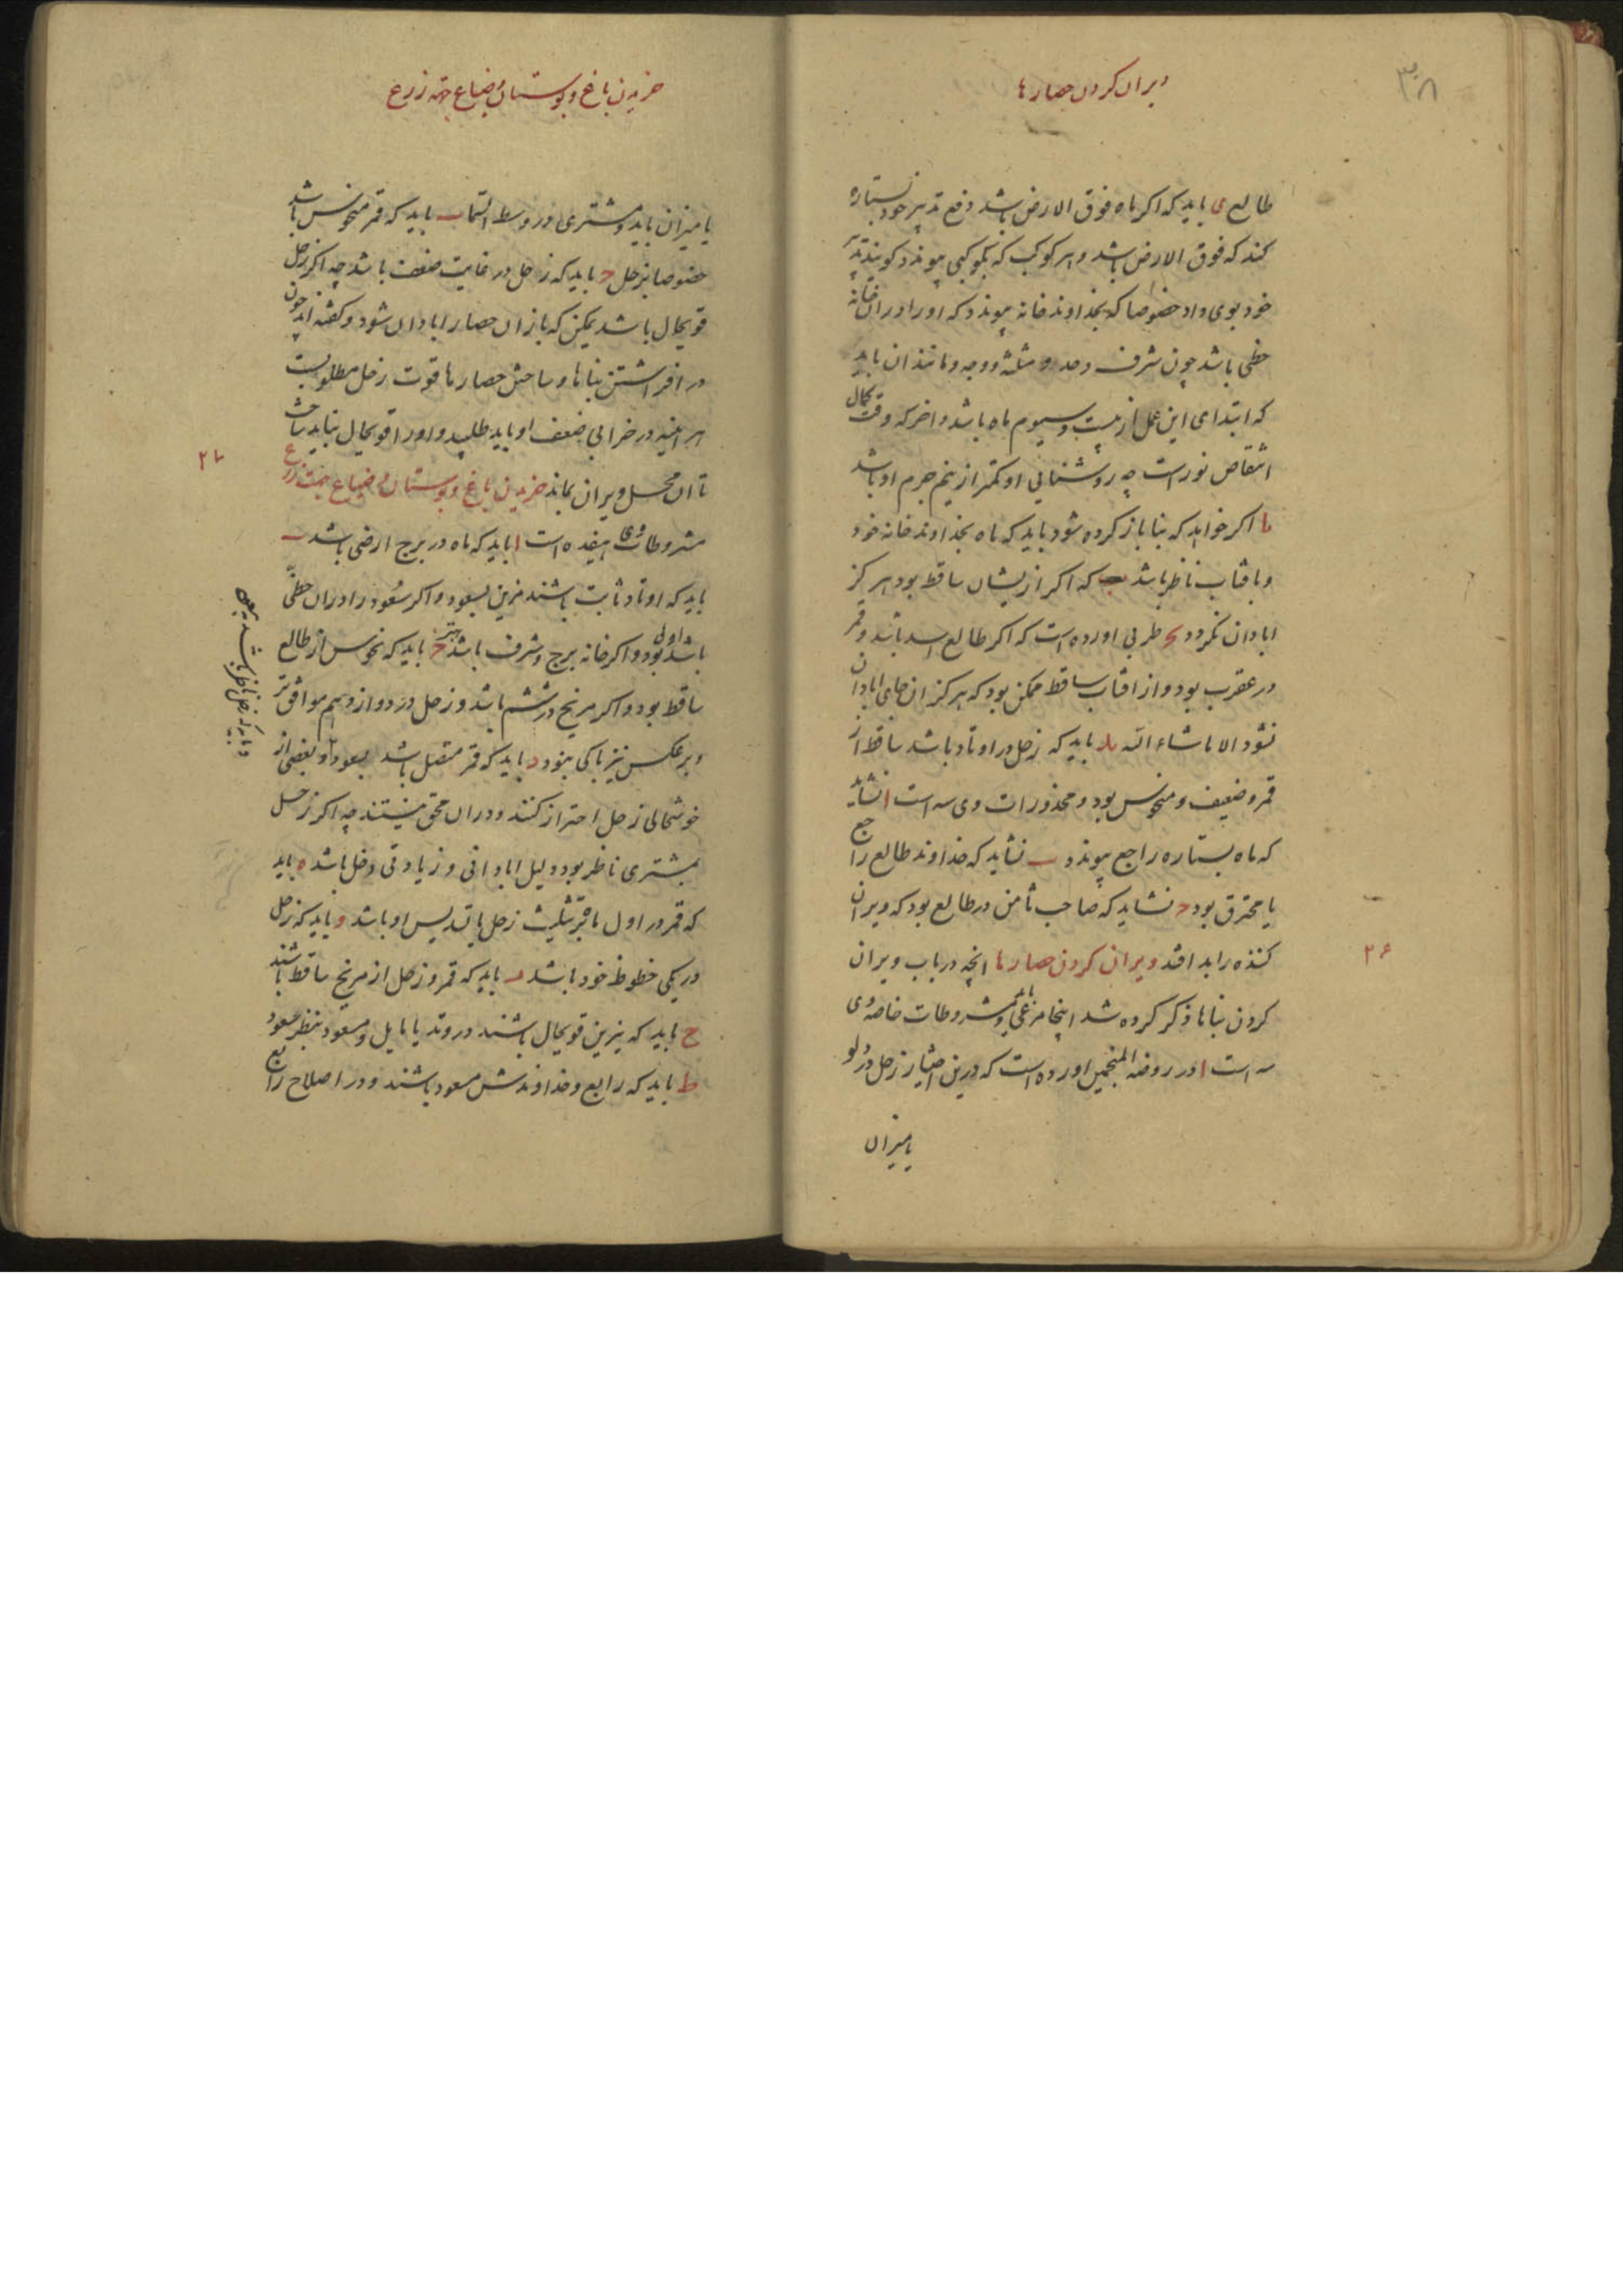 ۳۰۸
ویران کردن حصارها
طالع ی باید که اکر ماه فوق الارض باشد دفع تدبیر خود بستاره
کند که فوق الارض باشد و هر کوکب که بکوکبی پیوندد کویند تدبیر
خود بوی داد خصوصا که بخداوند خانه پیوندد که او را در ان خانه
حظی باشد چون شرف و حد و مثلثه و وجه و مانند ان باید
که ابتدای این عمل از بیست و سیوم ماه باشد و اخر که وقت کمال
انتقاص نورست چه روشنایی او کمتر از نیم جرم او باشد
یا اکر خواهد که بنا باز کرده شود باید که ماه بخداوند خانه خود
و بافتاب ناظر باشد که اکر ازیشان ساقط بود هرکز
ابادان نکردد یج طربی اورده است که اکر طالع اسد باشد و قمر
در عقرب بود و از افتاب ساقط ممکن بود که هرکز ان جای ابادان
نشود الا ماشاء الله ید باید که زحل در اوتاد باشد ساقط از
قمر و ضعیف و منحوس بود و محذورات وی سه است ا نشاید
که ماه بستاره راجع پیوندد ب نشاید که خداوند طالع راجع
یا محترق بود ج نشاید که صاحب ثامن در طالع بود که ویران
کننده را بد افتد ویران کردن حصارها انچه در باب ویران
۲۶
کردن بناها ذکر کرده شد اینجا مرعی باید و مشروطات خاصه وی
سه است ا در روضه المنجمین اورده است که درین اختیار زحل در دلو
یا میزان
خریدن باغ و بوستان و ضیاع جهة زرع
یا میزان باید و مشتری در وسط السما ب باید که قمر منحوس باشد
خصوصا بزحل ج باید که زحل در غایت ضعف باشد چه اکر زحل
قویحال باشد یمکن که باز ان حصار ابادان شود و کفته اند چون
در افراشتن بناها و ساختن حصارها قوت زحل مطلوبست
هر اینه در خرابی ضعف او باید طلبید و او را قویحال نباید ساخت
تا ان محل ویران بماند خریدن باغ و بوستان و ضیاع جهت زرع
۲۷
مشروطات وی هفده است ا باید که ماه در برج ارضی باشد ب
باید که اوتاد ثابت باشند مزین بسعود و اکر سعود را در ان حظی
باشد اولی بود و اکر خانه برج و شرف باشد بهتر ج باید که نحوس از طالع
ساقط بود و اکر مریخ در ششم باشد و زحل در دوازدهم موافق تر
و بر عکس نیز باکی نبود د باید که قمر متصل باشد بسعود و بعضی از
خوشحالی زحل احتراز کنند و در ان محق نیستند چه اکر زحل
بمشتری ناظر بود دلیل ابادانی و زیادتی دخل باشد ه باید
که قمر در اول ماه در تثلیث زحل یا تسدیس او باشد و باید که زحل
در یکی حظوظ خود باشد ز باید که قمر و زحل از مریخ ساقط باشند
ح باید که نیرین قویحال باشند در وتد یا مایل و مسعود بنظر سعود
ط باید که رابع و خداوندش مسعود باشند و در اصلاح رابع